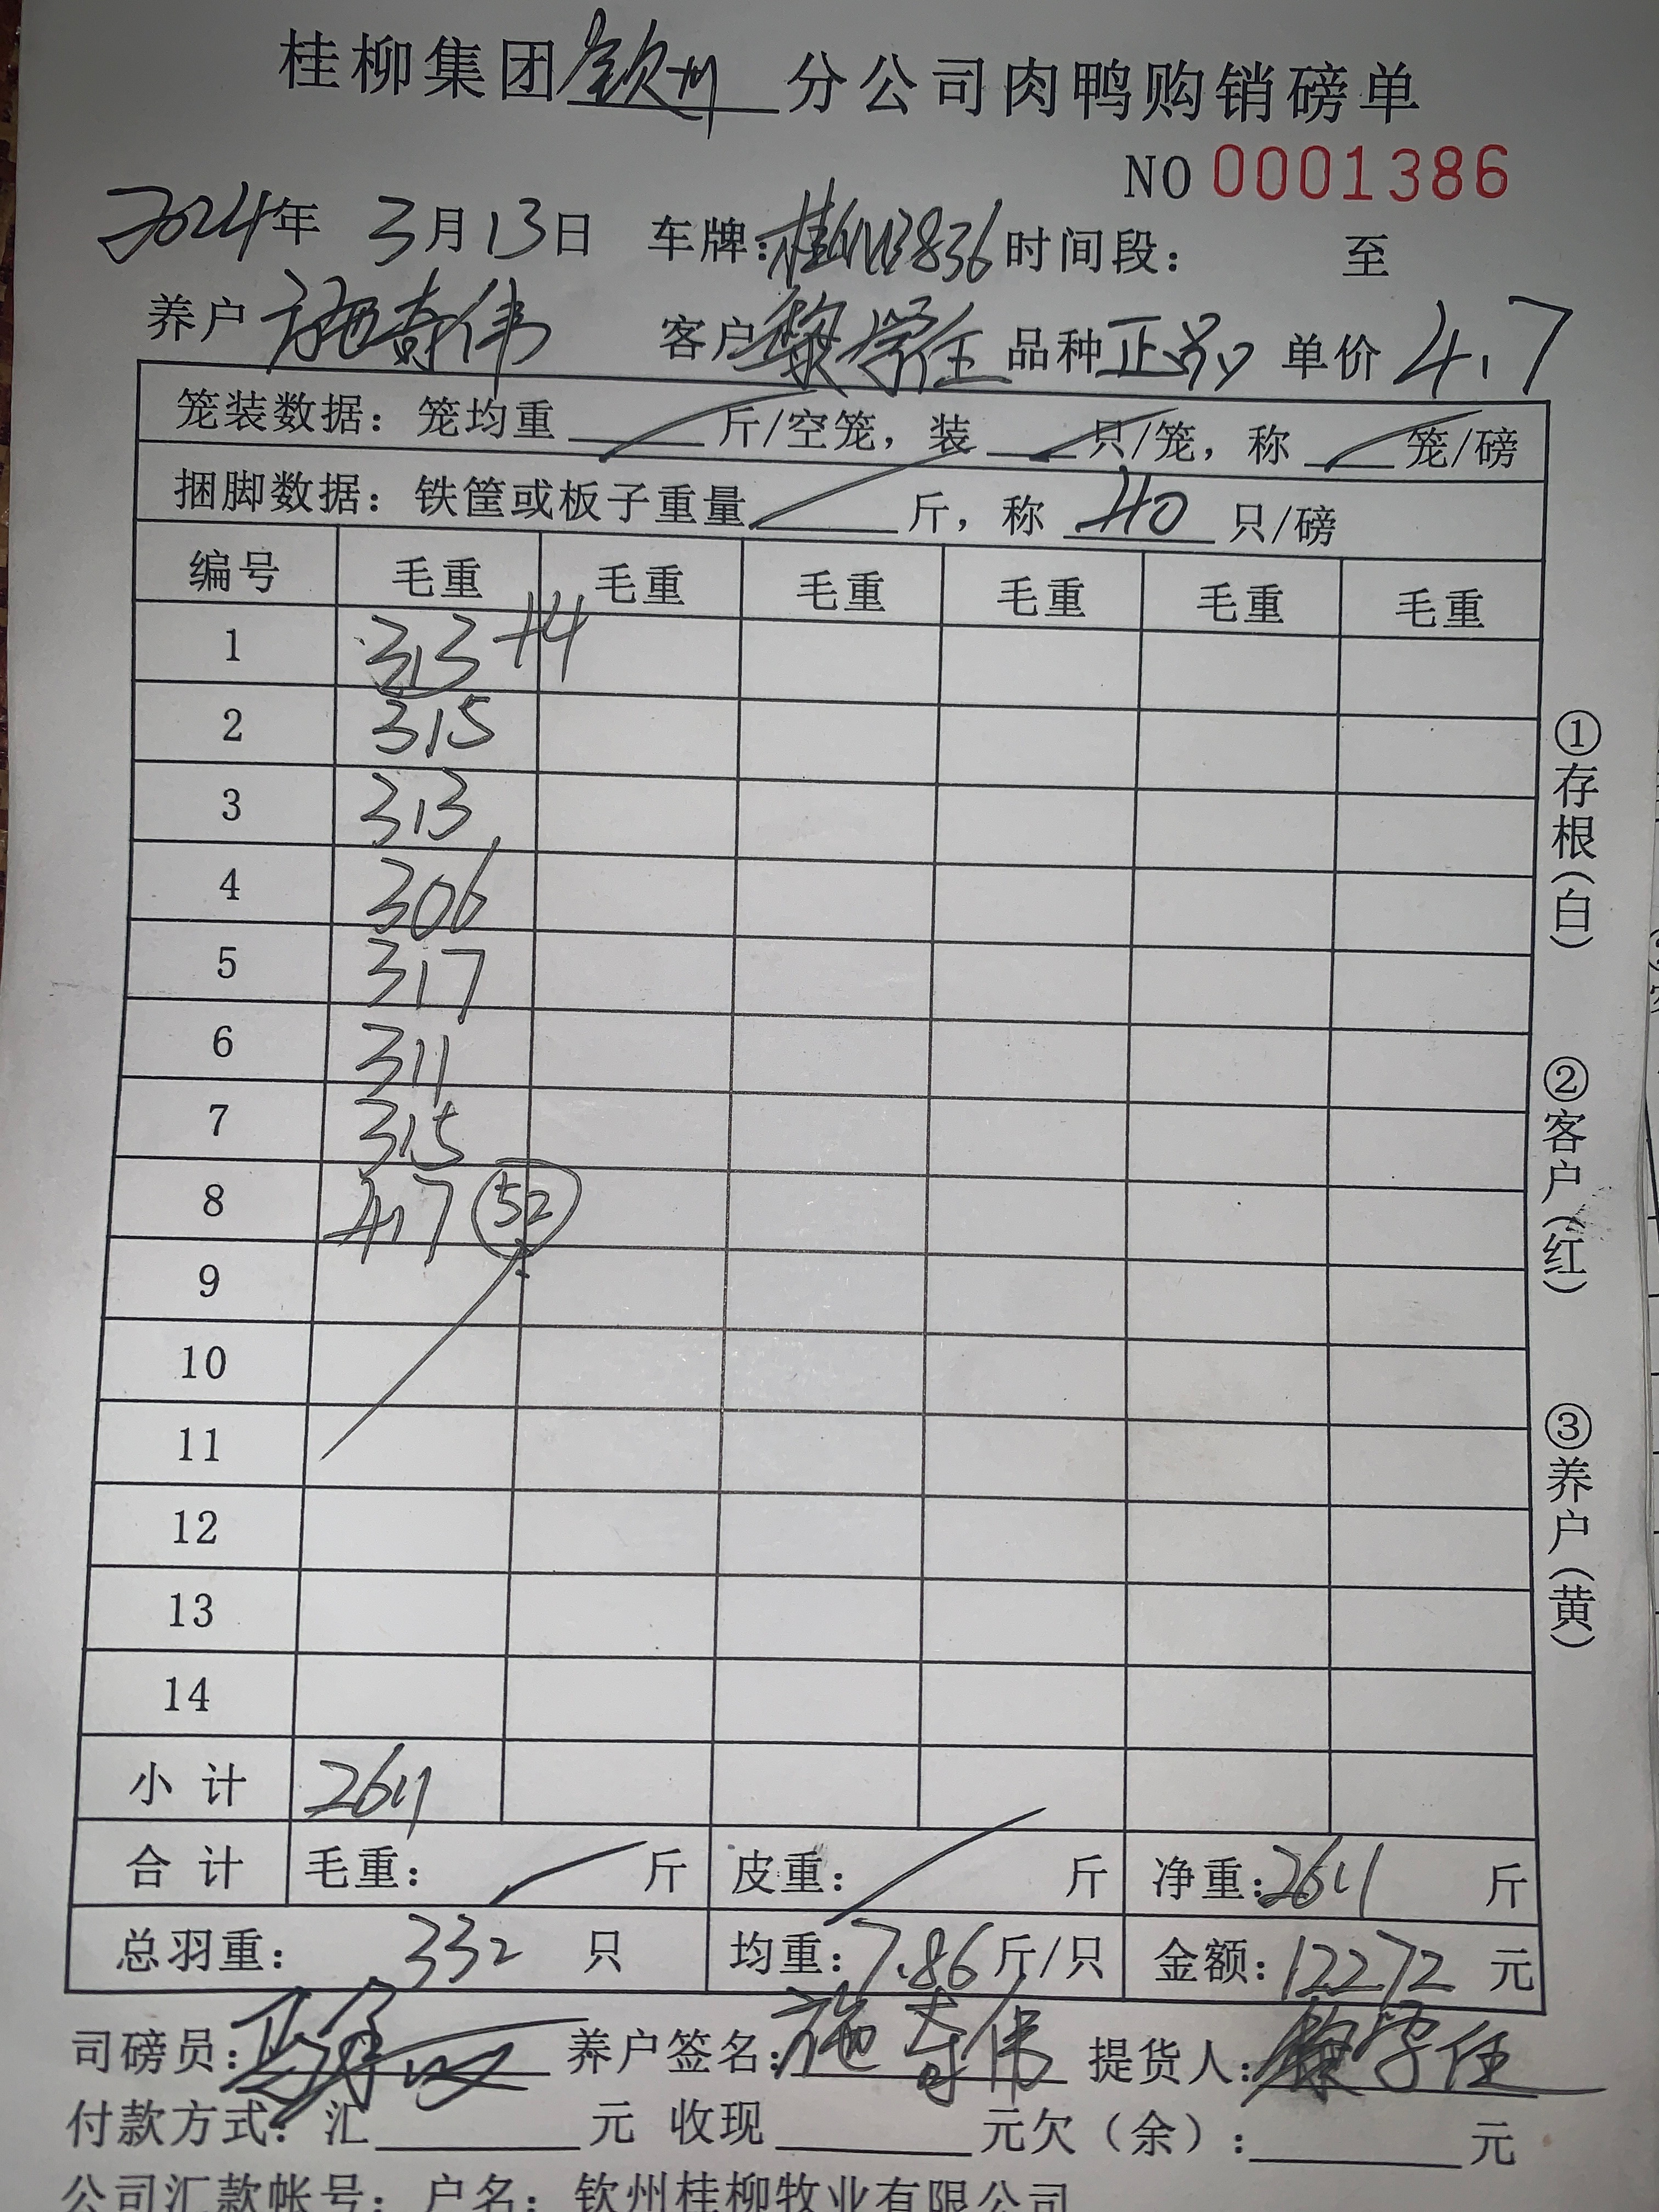 桂柳集团 钦州 分公司肉鸭购销磅单
NO 0001386
2024年 3月13日 车牌: 桂 3836 时间段: 至
养户 施奇伟 客户 黎学任 品种 正品 单价 4.7
笼装数据: 笼均重 斤/空笼, 装 只/笼, 称 笼/磅
捆脚数据: 铁筐或板子重量 斤, 称 40 只/磅
编号 毛重 毛重 毛重 毛重 毛重 毛重
1 313 +4
2 315
3 313
4 306
5 317
6 311
7 315
8 417 52
9
10
11
12
13
14
小计 2611
合计 毛重: 斤 皮重: 斤 净重: 2611 斤
总羽重: 332 只 均重: 7.86 斤/只 金额: 12272 元
司磅员: 养户签名: 施奇伟 提货人: 黎学任
付款方式: 汇 元 收现 元欠(余): 元
公司汇款帐号: 户名: 钦州桂柳牧业有限公司
①存根(白)
②客户(红)
③养户(黄)